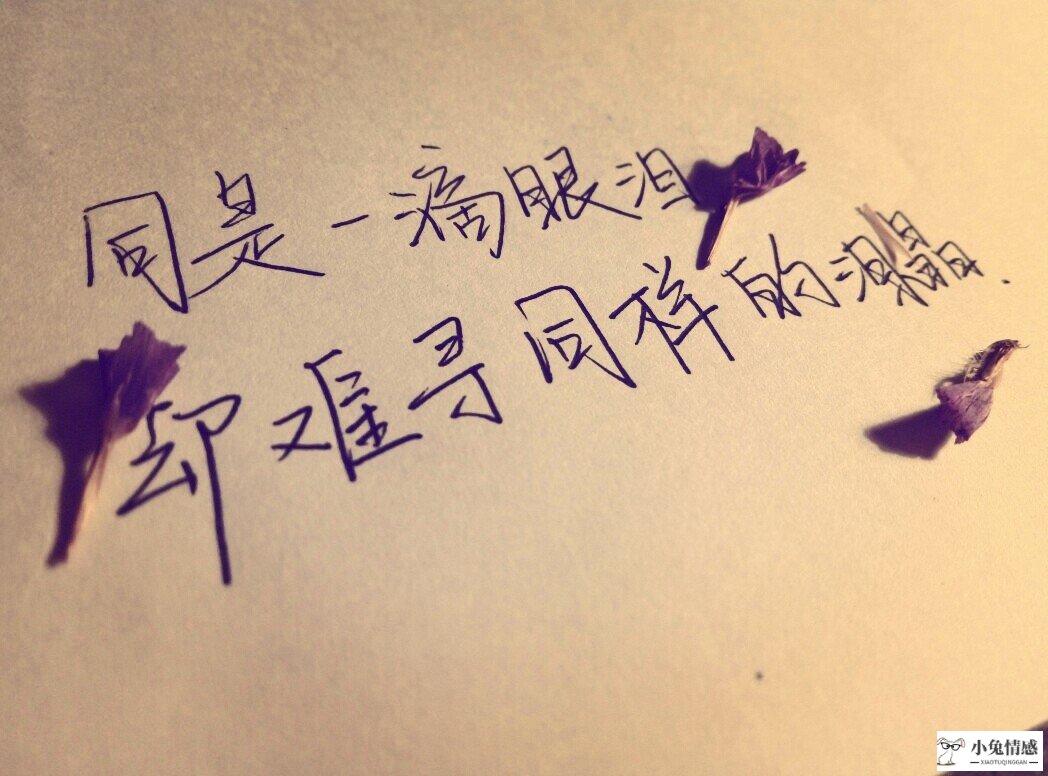 同是一滴眼泪
却难寻同样的晶.
小兔情感
XIAOTUQINGGAN